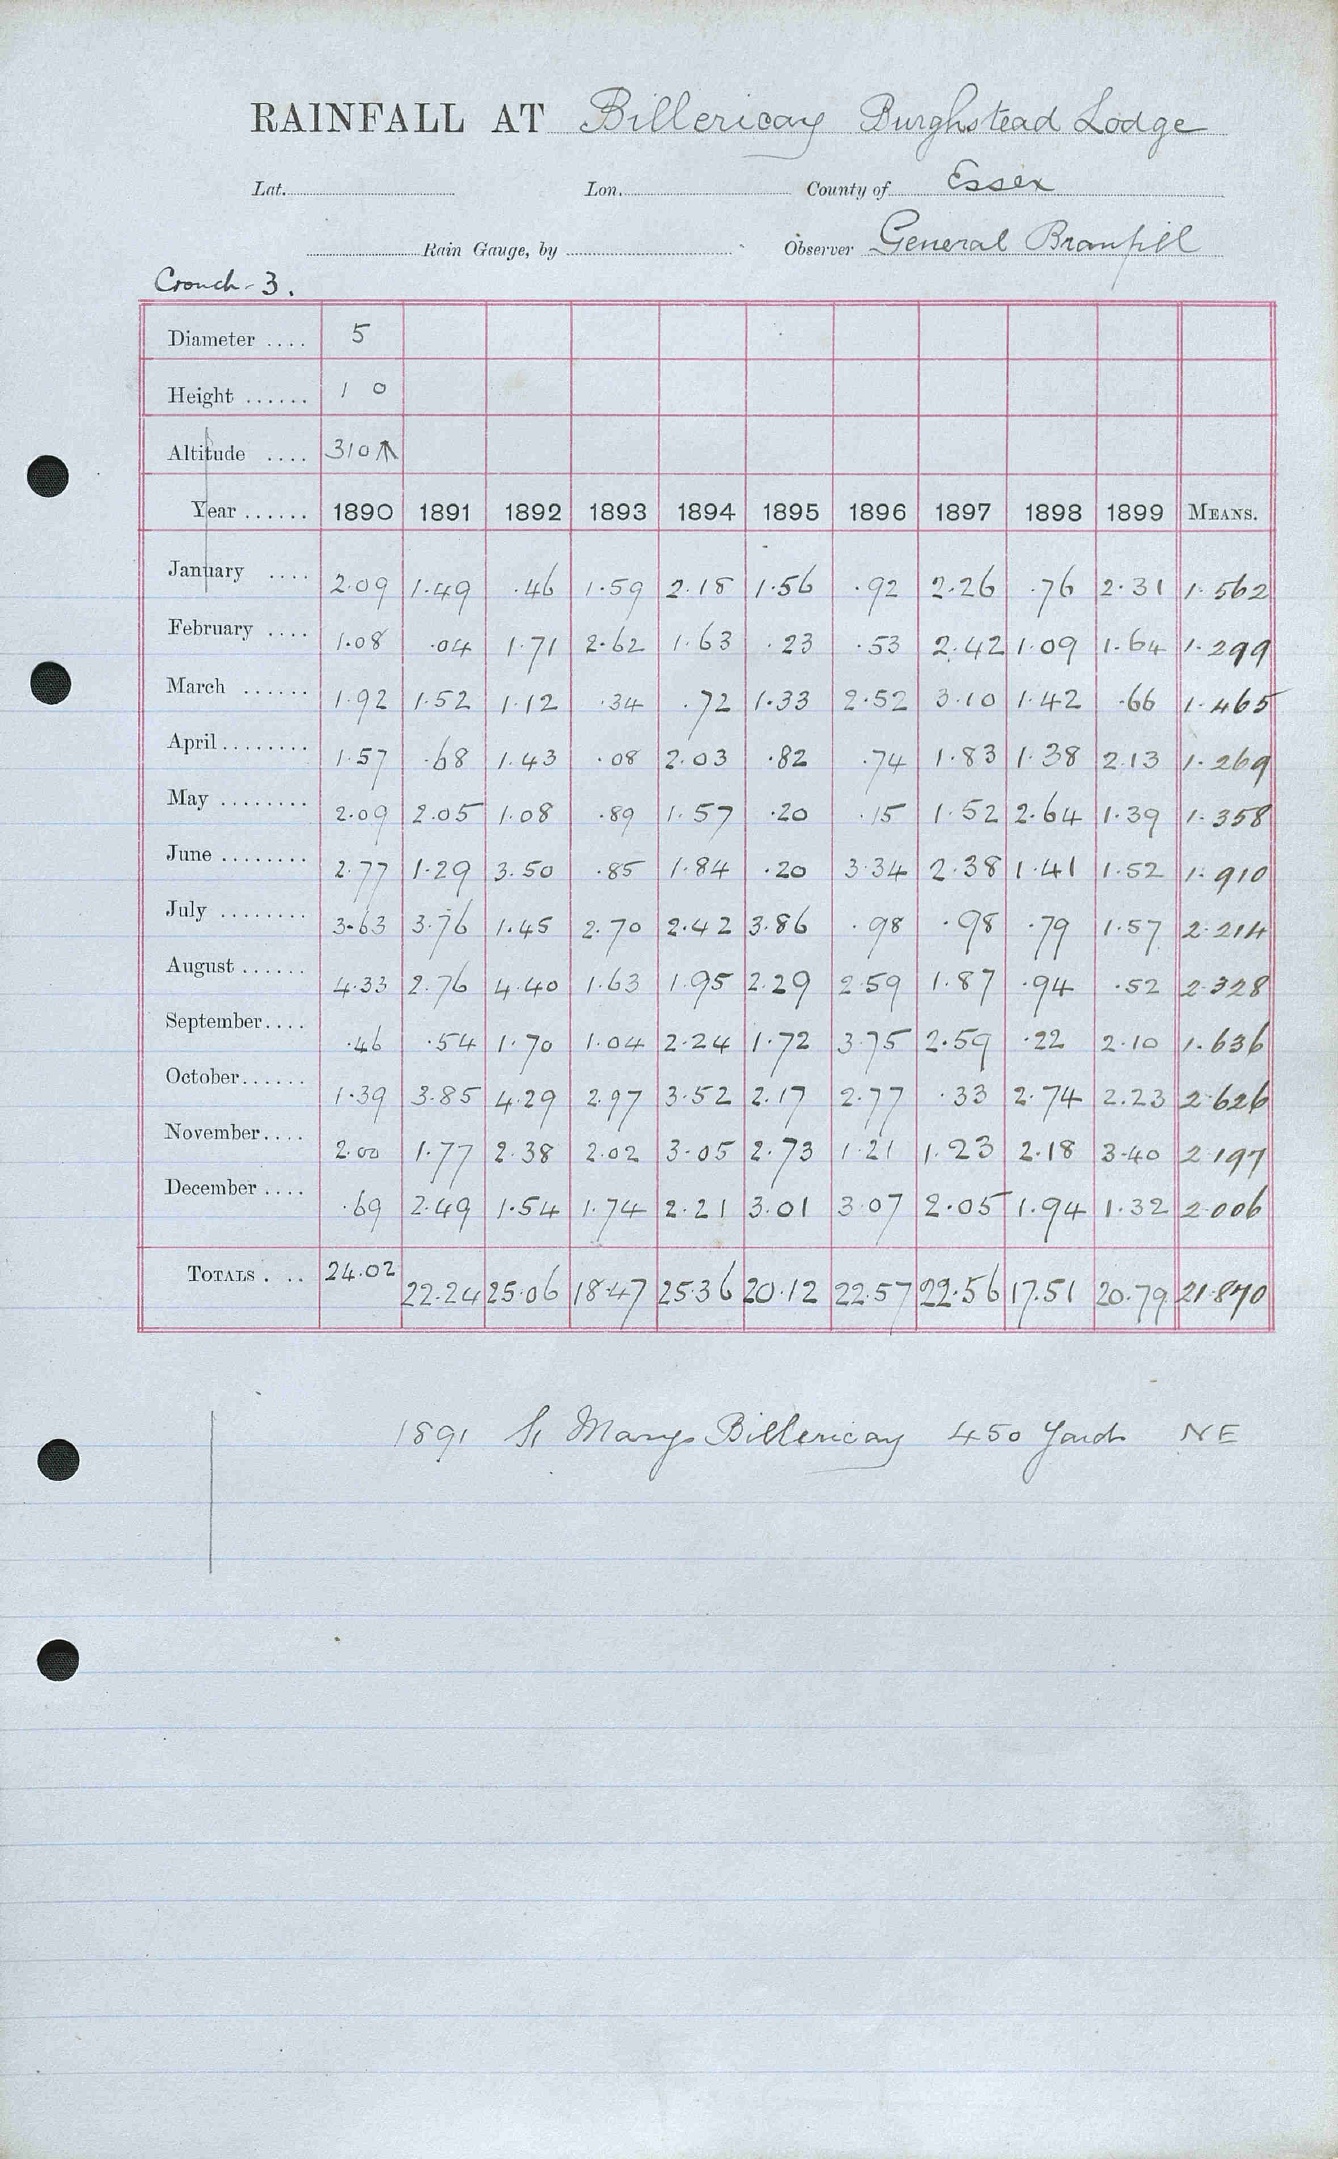 RAINFALL AT Billericay Burghstead Lodge
Lat. Lon. County of Essex
Rain Gauge, by Observer General Branfill
Crouch-3.
Diameter .... 5
Height ...... 1 0
Altitude .... 310
Year ...... 1890 1891 1892 1893 1894 1895 1896 1897 1898 1899 MEANS.
January .... 2.09 1.49 .46 1.59 2.18 1.56 .92 2.26 .76 2.31 1.562
February .... 1.08 .04 1.71 2.62 1.63 .23 .53 2.42 1.09 1.64 1.299
March ...... 1.92 1.52 1.12 .34 .72 1.33 2.52 3.10 1.42 .66 1.465
April ........ 1.57 .68 1.43 .08 2.03 .82 .74 1.83 1.38 2.13 1.269
May ........ 2.09 2.05 1.08 .89 1.57 .20 .15 1.52 2.64 1.39 1.358
June ........ 2.77 1.29 3.50 .85 1.84 .20 3.34 2.38 1.41 1.52 1.910
July ........ 3.63 3.76 1.45 2.70 2.42 3.86 .98 .98 .79 1.57 2.214
August ...... 4.33 2.76 4.40 1.63 1.95 2.29 2.59 1.87 .94 .52 2.328
September .... .46 .54 1.70 1.04 2.24 1.72 3.75 2.59 .22 2.10 1.636
October ...... 1.39 3.85 4.29 2.97 3.52 2.17 2.77 .33 2.74 2.23 2.626
November .... 2.00 1.77 2.38 2.02 3.05 2.73 1.21 1.23 2.18 3.40 2.197
December .... .69 2.49 1.54 1.74 2.21 3.01 3.07 2.05 1.94 1.32 2.006
TOTALS . .. 24.02 22.24 25.06 18.47 25.36 20.12 22.57 22.56 17.51 20.79 21.870
1891 St Marys Billericay 450 Yards NE